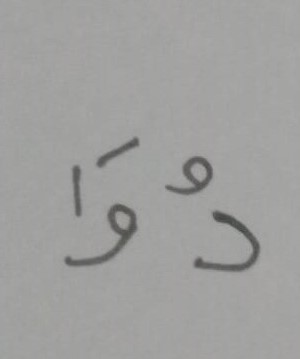 دُوَا